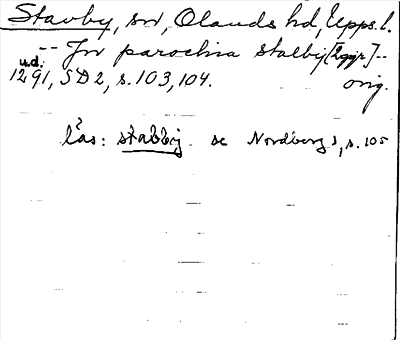 Stavby, sn, Olands hd, Upps. l.
-- In parochia stalbij [2 ggr] --
u.d. 1291, SD 2, s. 103, 104. orig.
läs: stabbij se Nordberg 1, s. 105